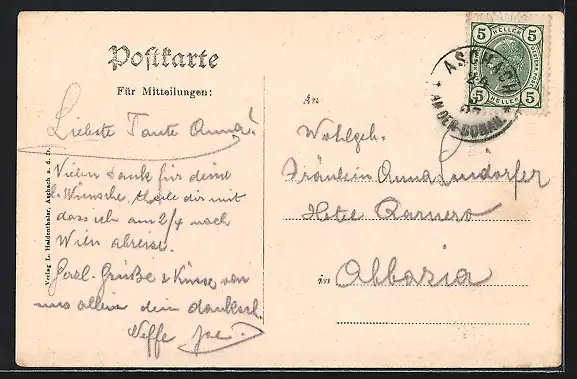 Postkarte
Für Mitteilungen:
Liebste Tante Anna!
Vielen Dank für deine
Wünsche, theile dir mit
dass ich am 2/4 nach
Wien abreise.
Herzl. Grüße & Küsse von
uns allen dein danksch.
Neffe
Verlag L. Haidenthaler, Aschach a. d. D.
An
Wohlgeb.
Fräulein Anna
Hotel Quarnero
in Abbazia
ASCHACH
AN DER DONAU
5 HELLER 5
5 HELLER 5